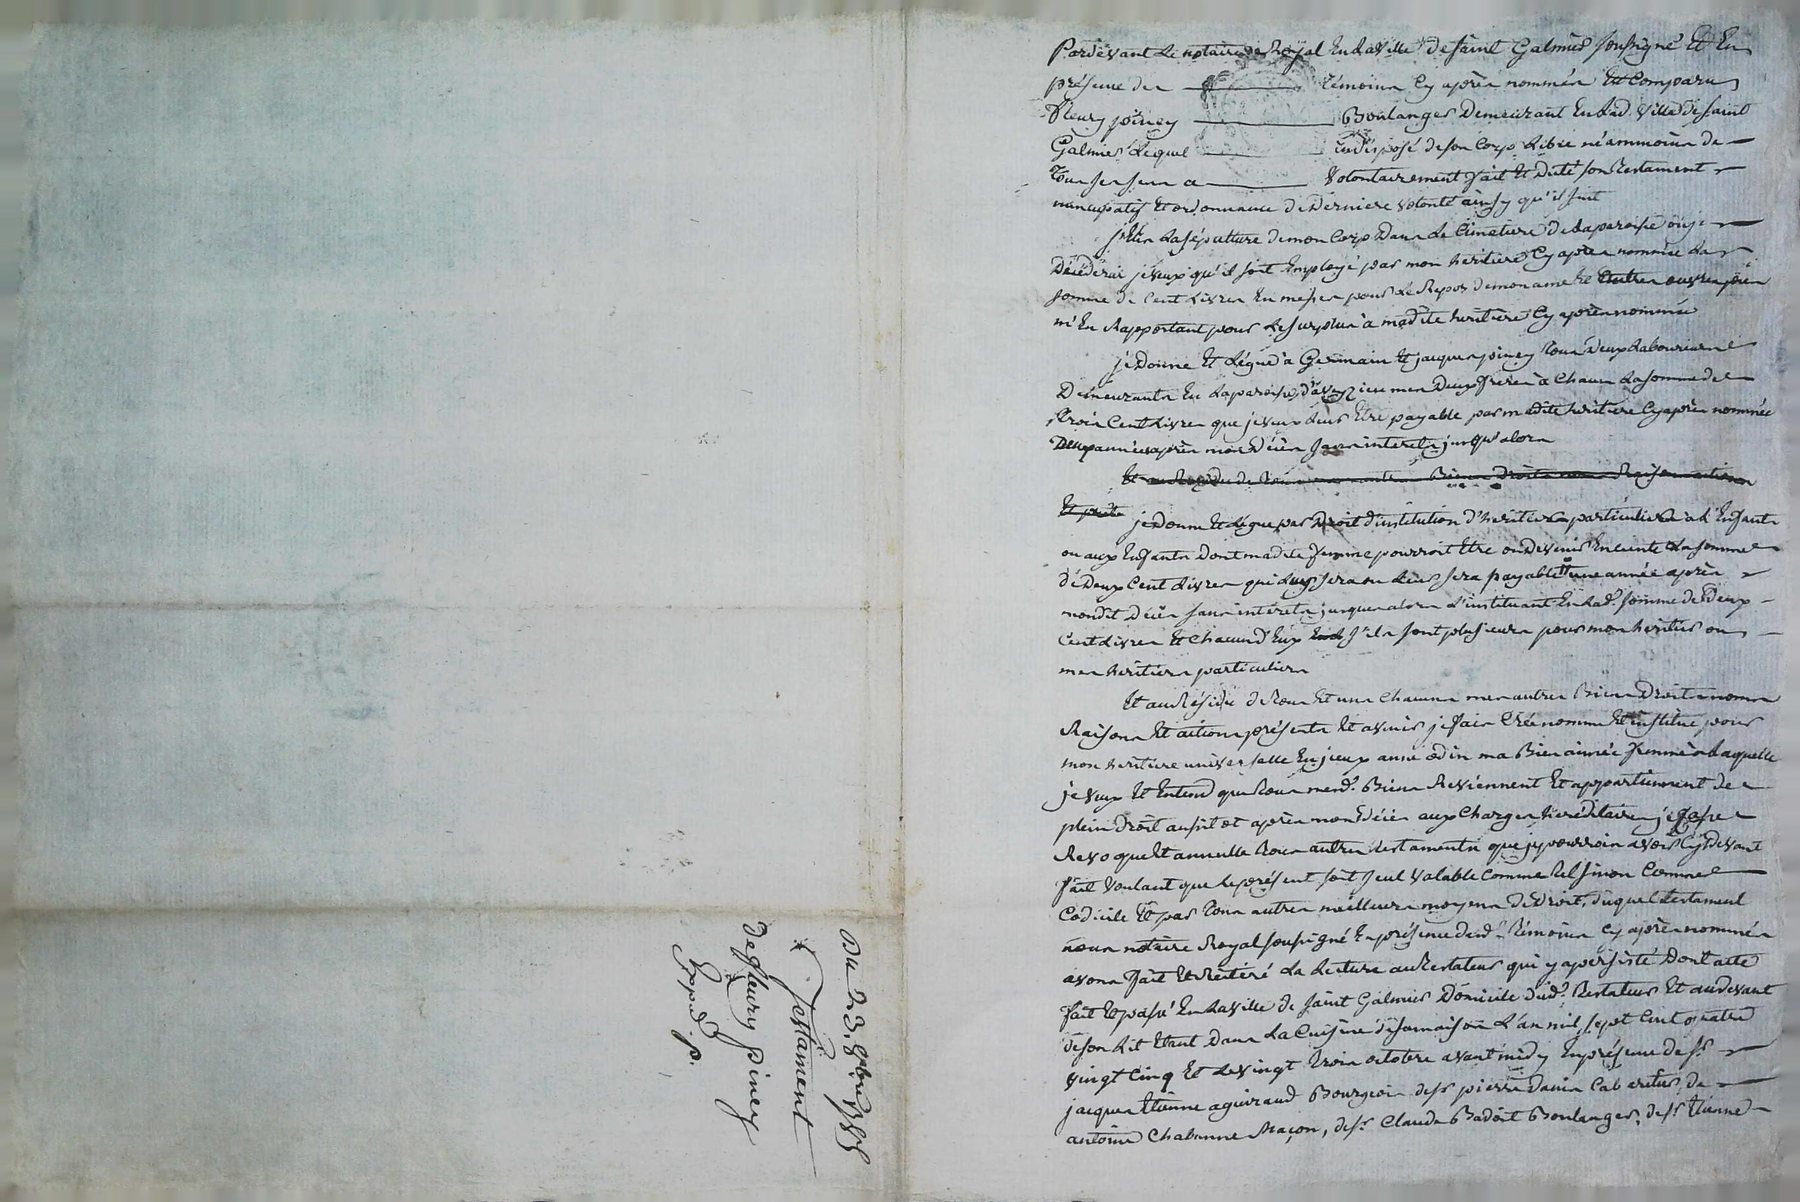 Pardevant le notaire Royal En la ville de saint Galmier soussigné Et En
présence des témoins cy après nommés Est Comparu
fleury piney Boulanger Demeurant En lad. ville de saint
Galmier lequel indisposé de son Corp libre néammoins de
Tous ses sens a volontairement fait Et Dicté son Testament
nuncupatif Et ordonnance de Derniere volonté ainsy qu'il suit
j'élis la sépulture de mon Corp Dans le Cimetiere de la paroisse où je
Décéderai je veux qu'il soit Employé par mon heritiere Cy après nommée la
somme de Cent livres En messes pour le Repos de mon ame Et autres œuvres pies
m'En Rapportant pour le surplus à madite heritiere Cy après nommée
je Donne Et légue à Germain Et jacques piney Tous Deux laboureurs
Demeurants En la paroisse d'aveizieu mes Deux freres à Chacun la somme de
trois Cent livres que je veux leur Etre payable par madite heritiere Cy après nommée
Deux années après mon Décès sans interets jusqu'alors
Et au Résidu de Tous Biens Droits noms Raisons actions
Et
je Donne Et légue par Droit d'institution d'heritier particulier à l'Enfant
ou aux Enfants Dont madite femme pourroit Etre ou Devenir Enceinte la somme
de Deux Cent livres qui luy sera ou leur sera payable une année après
mondit Décès sans interets jusques alors l'instituant En lad. somme de Deux
Cent livres Et Chacun d'Eux s'ils sont plusieurs pour mon heritier ou
mes heritiers particuliers
Et au Résidu de Tous Et uns Chacuns mes autres Biens Droits noms
Raisons Et actions présents Et avenir je fais Crée nomme Et institue pour
mon heritiere universelle anne odin ma Bien aimée femme à laquelle
je veux Et Entend que Tous mesd. Biens Reviennent Et appartiennent de
plein Droit aussitot après mon Décès aux Charges héréditaires je Casse
Revoque Et annulle Tous autres testaments que je pourrois avoir Cy Devant
fait voulant que le présent soit seul valable Comme tel sinon Comme
Codicile Et par Tous autres meilleurs moyens de Droit, duquel testament
nous notaire Royal soussigné En présence desd. Témoins Cy après nommés
avons fait Et Réitéré la lecture au Testateur qui y a persisté Dont acte
fait Et passé En la ville de saint Galmier Domicile dud. Testateur Et au devant
de son lit Etant Dans la Cuisine de sa maison l'an mil sept Cent quatre
vingt Cinq Et le vingt Trois octobre avant midy En présence de sr
jacques Etienne aguiraud Bourgeois de sr pierre Danis Cabaretier, de
antoine Chabanne Maçon, de sr Claude Badoit Boulanger, de sr Etienne
Du 23. 8bre 1785
Testament
de fleury piney
Expd. p.